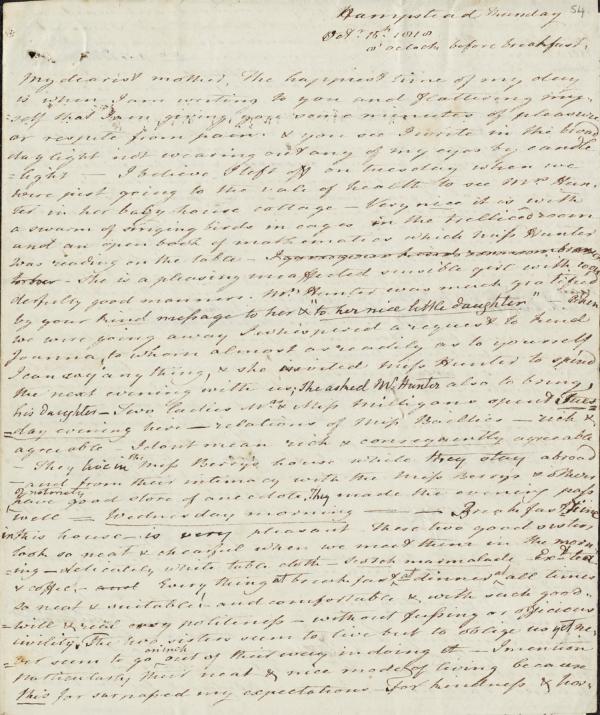 54
Hampstead Tuesday
Octr. 15th 1818
8 oclock before breakfast.
My dearest mother, The happiest time of my day
is when I am writing to you and flattering my-
self that I am giving you some minutes of pleasure
or respite from pain & you see I write in the broad
daylight not wearing out any of my eyes by candle
-light — I believe I left off on tuesday when we
were just going to the vale of health to see Mrs Hun-
ter in her baby house cottage — Very nice it is with
a swarm of singing birds in cages in the trelliced room
and an open book of mathematics which Miss Hunter
was reading on the table —
to her — She is a pleasing unaffected sensible girl with
derfully good manners. Mrs Hunter was much gratified
by your kind message to her & "to her nice little daughter" — When
we were going away I whispered a request to
Joanna, to whom almost as readily as to yourself
I can say any thing, & she invited Miss Hunter to spend
the next evening with us; She asked Mr Hunter also to bring
his daughter — Two ladies Mrs & Miss Milligans spent Tues-
=day evening here — relations of Miss Baillies — rich &
agreeable — I dont mean rich & consequently agreeable
— They live in the Miss Berry's house while they stay abroad
— and from their intimacy with the Miss Berrys & others
of notoriety have good store of anecdote. They made the evening pass
well — Wednesday morning — — Breakfast time
in this house is very pleasant These two good sisters
look so neat & chearful when we meet them in the morn
-ing — delicately white table cloth — scotch marmalade — Exd tea
& coffee and Every thing at breakfast & at dinner at all times
so neat & suitable! and comfortable & with such good-
-will & real politeness — without fussing or officious
civility. The two sisters seem to live but to oblige us yet ne-
-ver seem to go an inch out of their way in doing it — I mention
particularly their neat & nice mode of living because
this far surpassed my expectations For kindness & hos-